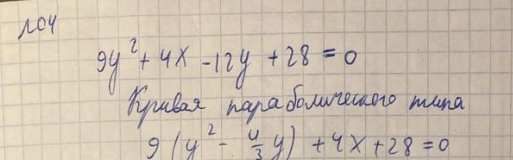 лоч
9y² + 4x - 12y + 28 = 0
Кривая параболического типа
9 (y² - 4/3 y) + 4x + 28 = 0